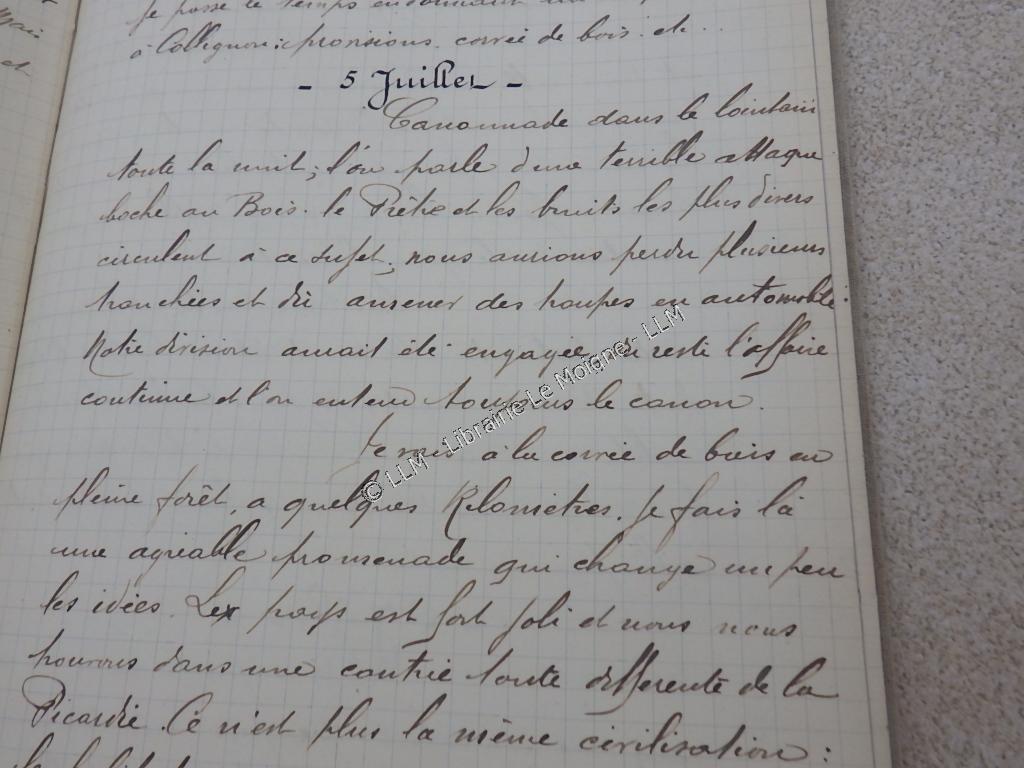 Je passe le temps en donnant un
à Collignon : provisions, corvée de bois. etc..
- 5 Juillet -
Canonnade dans le lointain
toute la nuit; l'on parle d'une terrible attaque
boche au Bois-le Prêtre et les bruits les plus divers
circulent à ce sujet; nous aurions perdu plusieurs
tranchées et dû amener des troupes en automobile.
Notre division aurait été engagée. Du reste l'affaire
continue et l'on entend toujours le canon.
Je vais à la corvée de bois en
pleine forêt, a quelques Kilomètres. Je fais là
une agréable promenade qui change un peu
les idées. Le pays est fort joli et nous nous
trouvons dans une contrée toute differente de la
Picardie. Ce n'est plus la même civilisation :
© LLM - Librairie Le Moigne - LLM